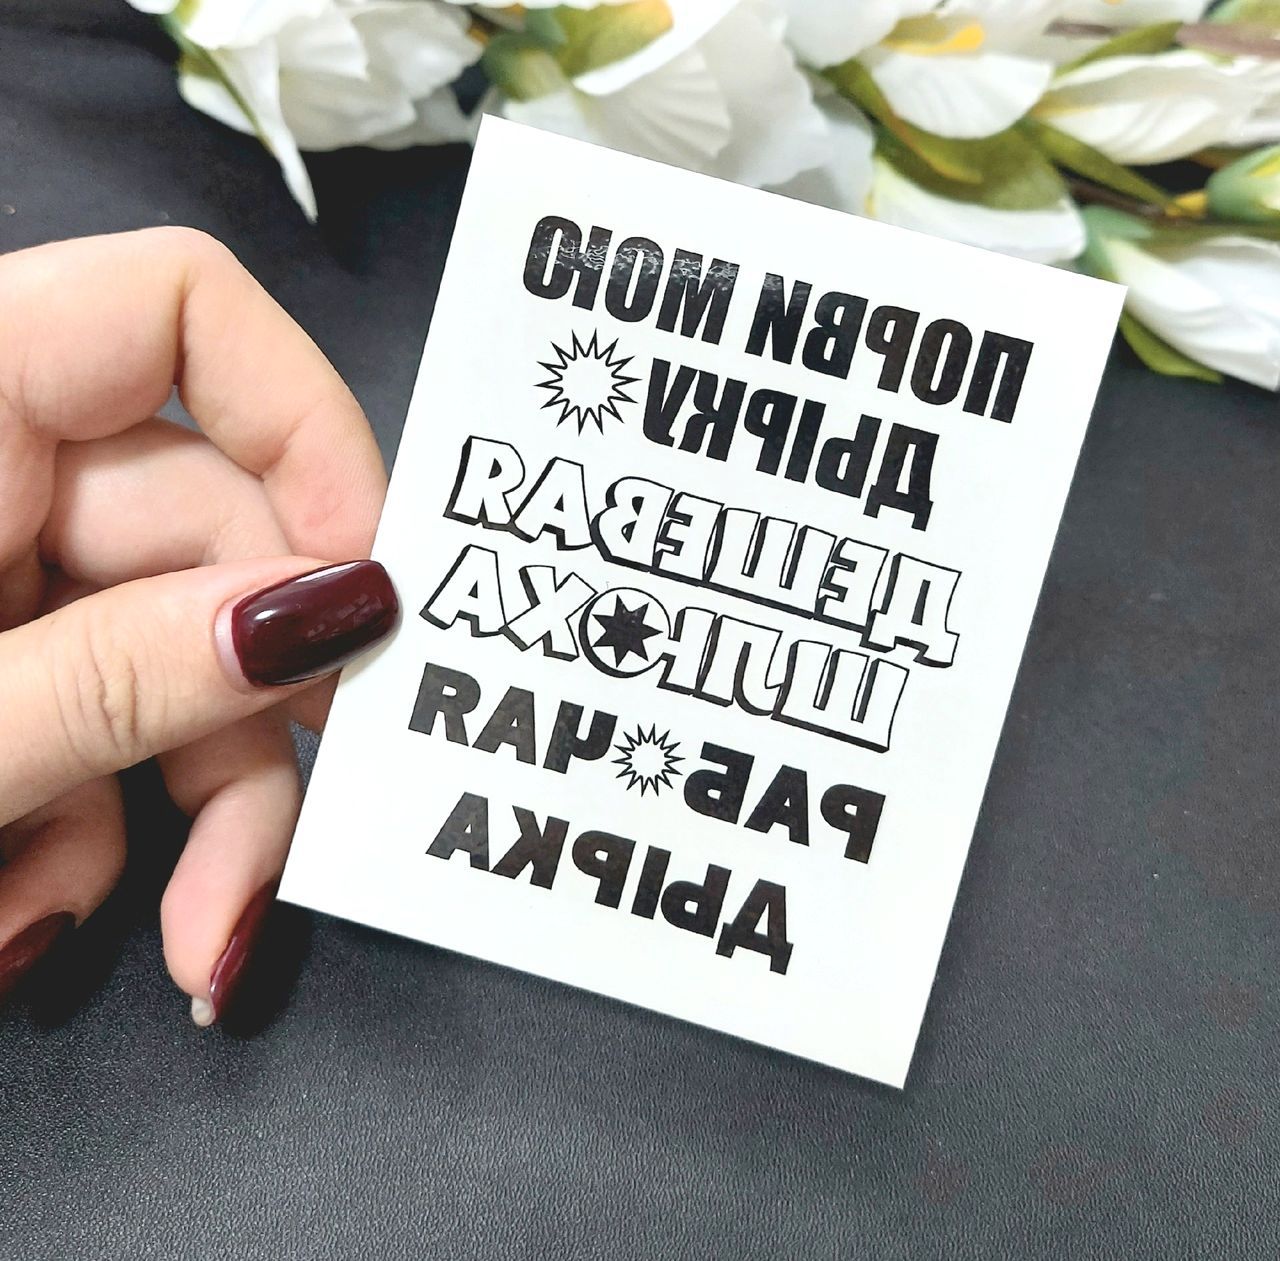 ПОРВИ МОЮ
ДЫРКУ
ДЕШЕВАЯ
ШЛЮХА
РАБОЧАЯ
ДЫРКА